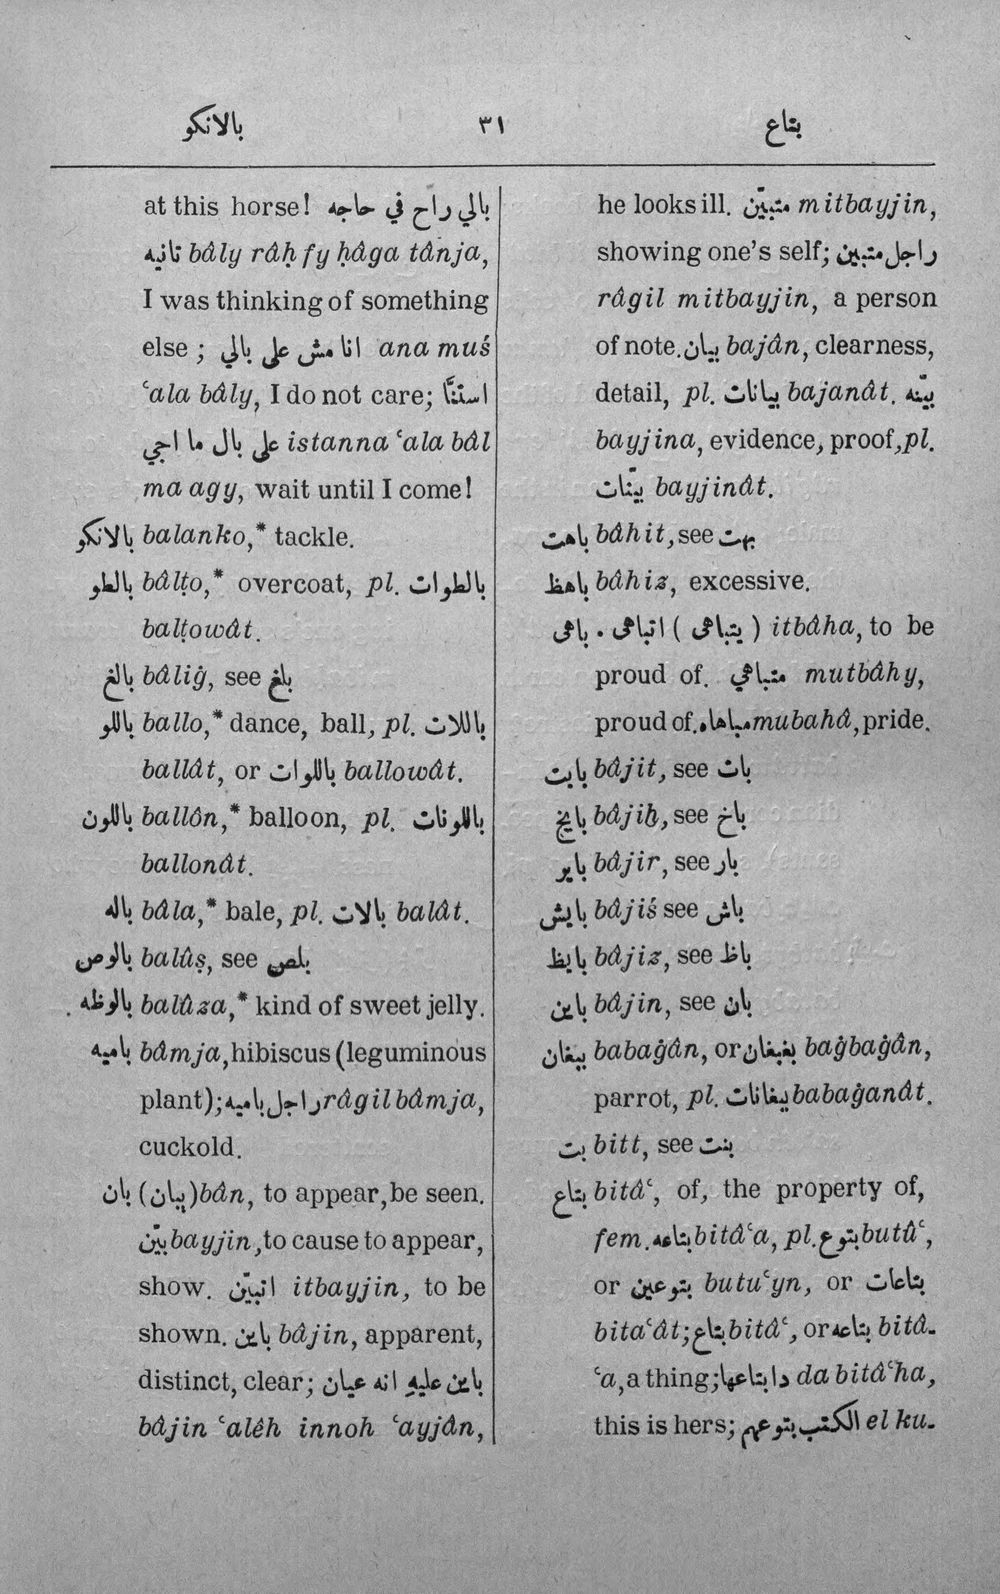 بالانكو ٣١ بتاع
at this horse! بالي راح في حاجه
تانيه bâly râḥ fy ḥâga tânja,
I was thinking of something
else ; انا مش على بالي ana muś
ʿala bâly, I do not care; استنَّا
على بال ما اجي istanna ʿala bâl
ma agy, wait until I come!
بالانكو balanko,* tackle.
بالطو bâlṭo,* overcoat, pl. بالطوات
balṭowât.
بالغ bâliġ, see بلغ
باللو ballo,* dance, ball, pl. باللات
ballât, or باللوات ballowât.
باللون ballôn,* balloon, pl. باللونات
ballonât.
باله bâla,* bale, pl. بالات balât.
بالوص balûṣ, see بلص
بالوظه balûza,* kind of sweet jelly.
باميه bâmja, hibiscus (leguminous
plant); راجل باميه râgil bâmja,
cuckold.
بان (يبان) bân, to appear, be seen.
بيّن bayjin, to cause to appear,
show. اتبيّن itbayjin, to be
shown. باين bâjin, apparent,
distinct, clear; باين عليهِ انه عيان
bâjin ʿalêh innoh ʿayjân,
he looks ill. متبيّن mitbayjin,
showing one's self; راجل متبين
râgil mitbayjin, a person
of note. بيان baján, clearness,
detail, pl. بيانات bajanât. بيّنه
bayjina, evidence, proof, pl.
بيّنات bayjinât.
باهت bâhit, see بهت
باهظ bâhiz, excessive.
باهى . اتباهى ( يتباهى ) itbâha, to be
proud of. متباهي mutbâhy,
proud of. مباهاه mubahâ, pride.
بايت bâjit, see بات
بايخ bâjiḫ, see باخ
باير bâjir, see بار
بايش bâjiś see باش
بايظ bâjiz, see باظ
باين bâjin, see بان
ببغان babaġân, or بغبغان baġbaġân,
parrot, pl. ببغانات babaġanât.
بت bitt, see بنت
بتاع bitâʿ, of, the property of,
fem. بتاعه bitâʿa, pl. بتوع butûʿ,
or بتوعين butuʿyn, or بتاعات
bitaʿât; بتاع bitâʿ, or بتاعه bitâ-
ʿa, a thing; دا بتاعها da bitâʿha,
this is hers; الكتب بتوعهم el ku-